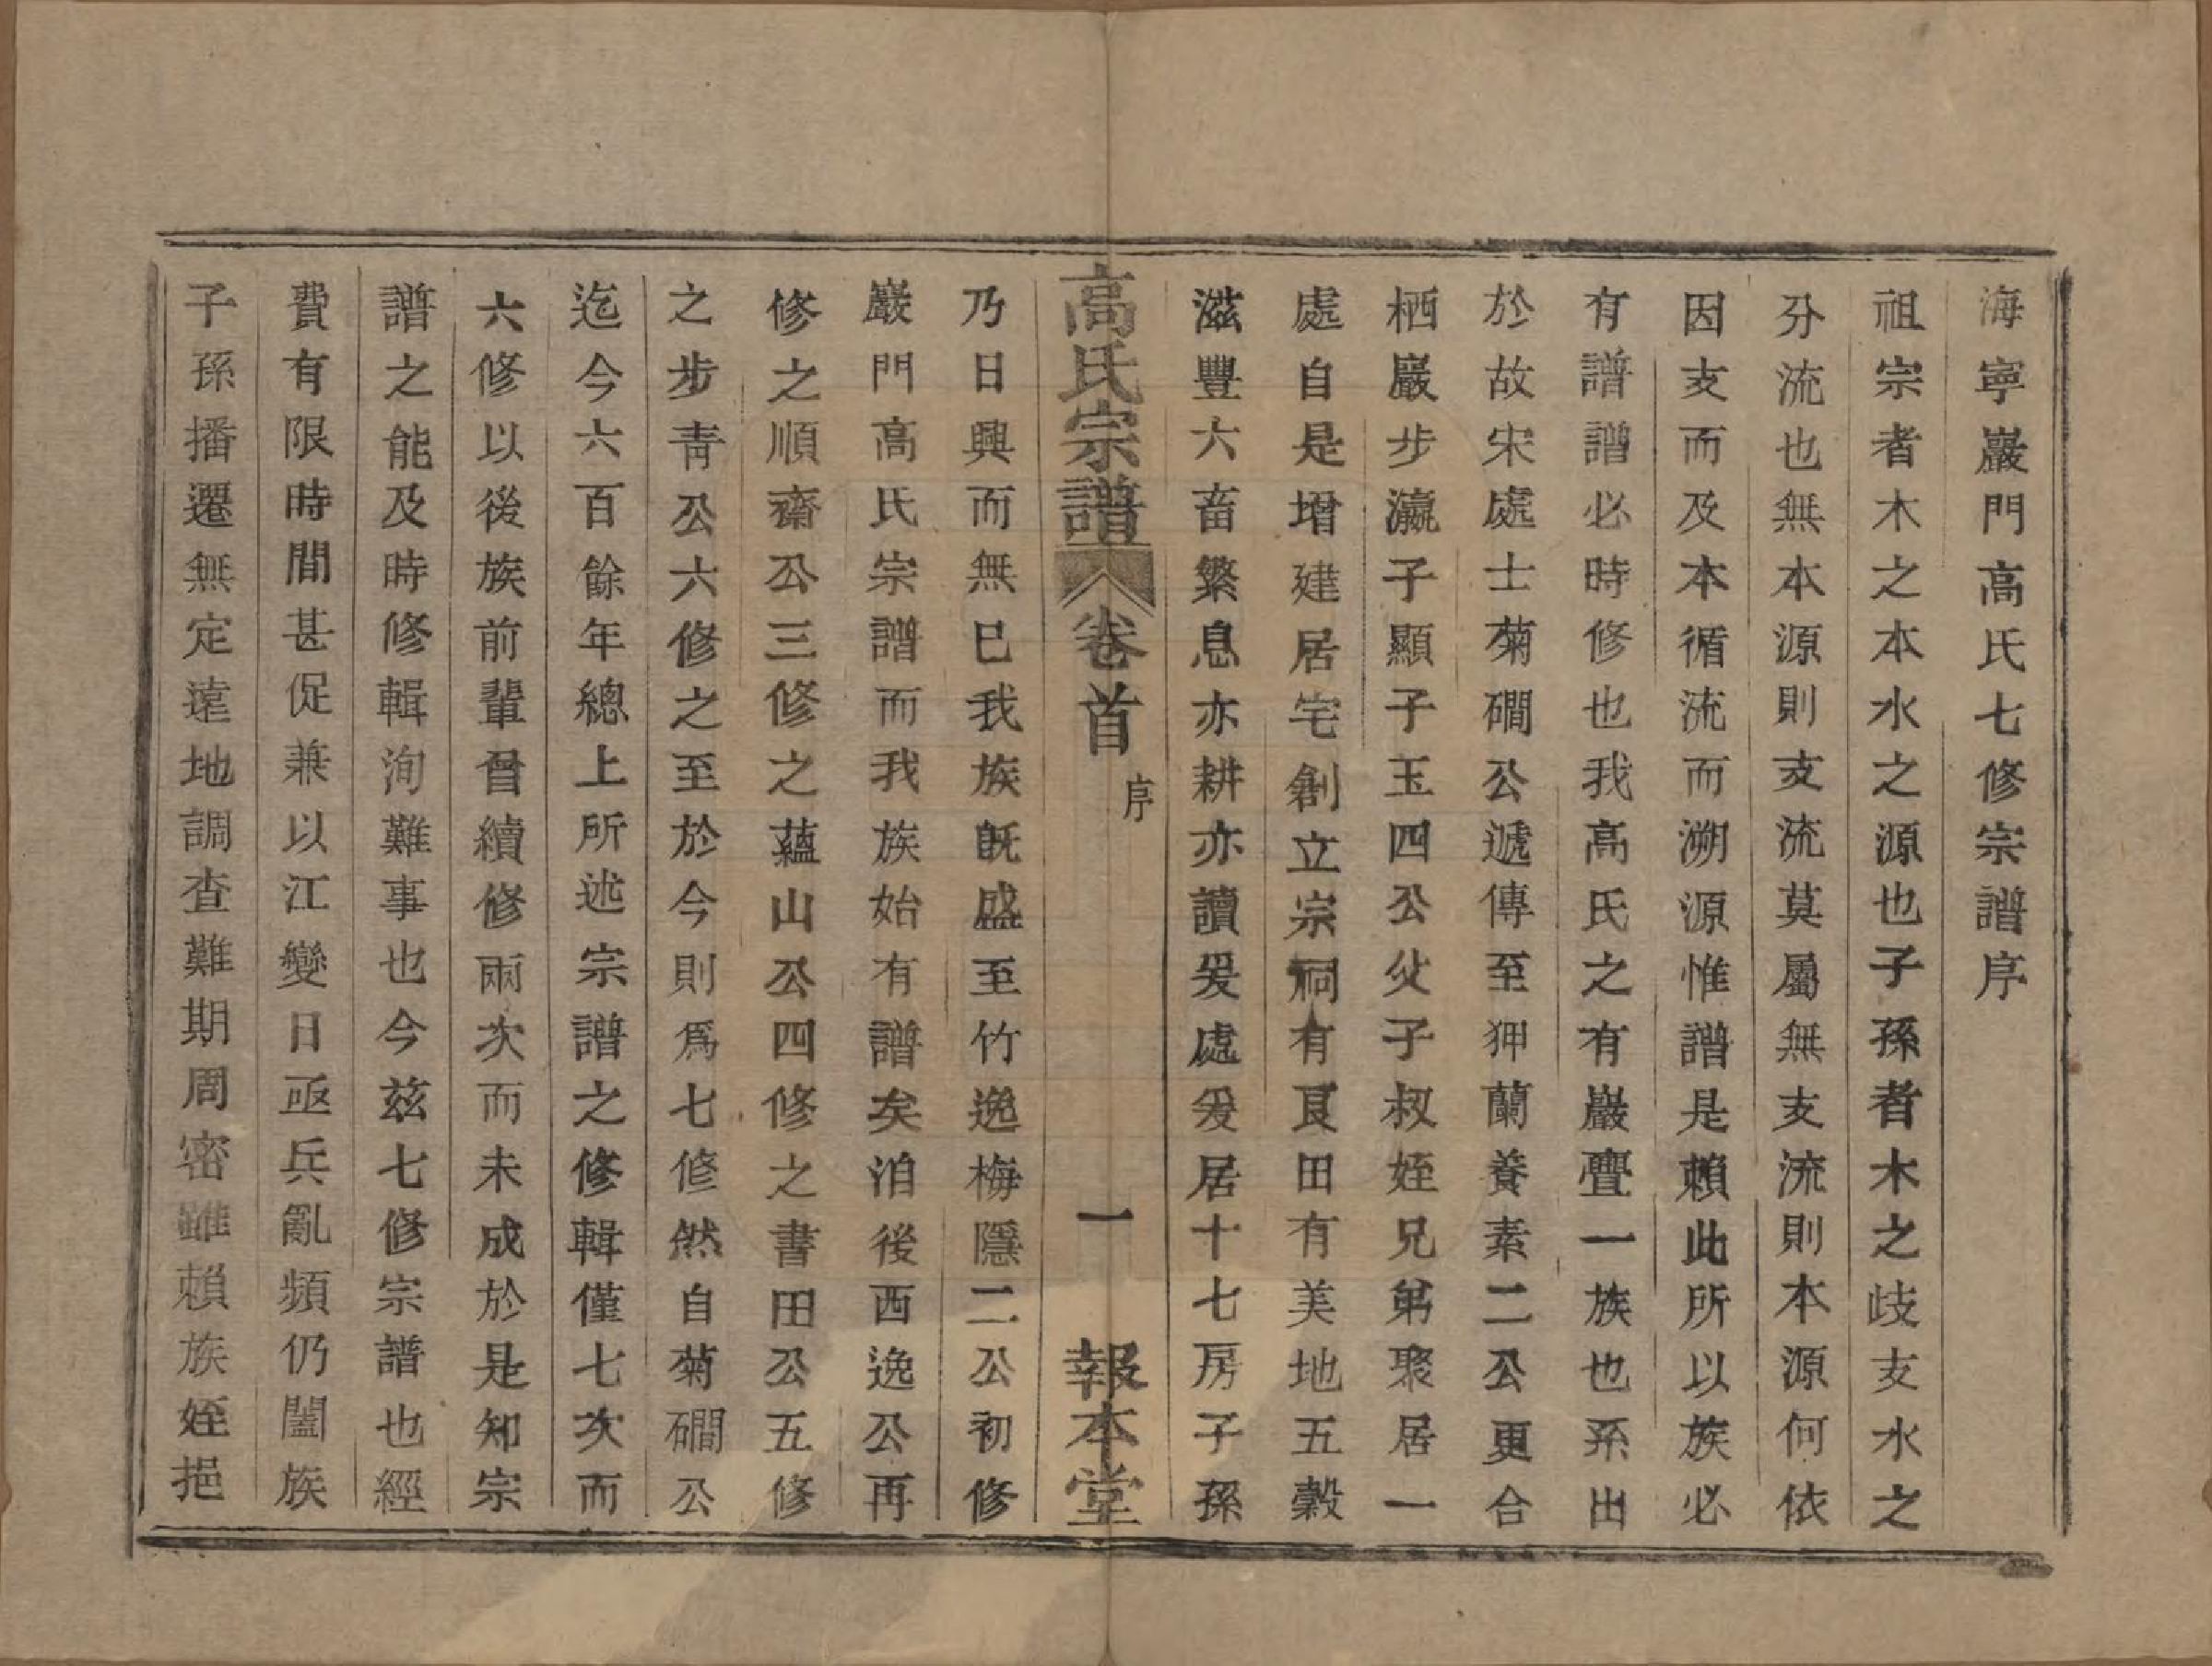 海寧巖門高氏七修宗譜序
祖宗者木之本水之源也子孫者木之歧支水之
分流也無本源則支流莫屬無支流則本源何依
因支而及本循流而溯源惟譜是賴此所以族必
有譜譜必時修也我高氏之有巖亹一族也系出
於故宋處士菊磵公遞傳至狎蘭養素二公更合
栖巖步瀛子顯子玉四公父子叔姪兄弟聚居一
處自是增建居宅創立宗祠有良田有美地五穀
滋豐六畜繁息亦耕亦讀爰處爰居十七房子孫
高氏宗譜 卷首 序 一 報本堂
乃日興而無已我族旣盛至竹逸梅隱二公初修
巖門高氏宗譜而我族始有譜矣洎後西逸公再
修之順齋公三修之蘊山公四修之書田公五修
之步青公六修之至於今則爲七修然自菊磵公
迄今六百餘年總上所述宗譜之修輯僅七次而
六修以後族前輩曾續修兩次而未成於是知宗
譜之能及時修輯洵難事也今茲七修宗譜也經
費有限時間甚促兼以江變日亟兵亂頻仍闔族
子孫播遷無定遠地調查難期周密雖賴族姪挹